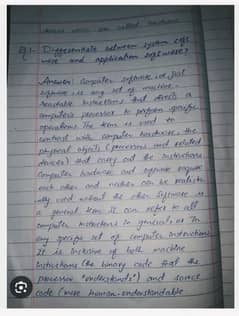 are called hardware
Q.1- Differentiate between system soft
ware and application software?
Answer: Computer software or just
software is any set of machine-
readable instructions that directs a
computer's processor to perform specific
operations. The term is used to
contrast with computer hardware, the
physical objects (processors and related
devices) that carry out the instructions.
Computer hardware and software require
each other and neither can be realistic
ally used without the other. Software is
a general term. It can refer to all
computer instructions in general, or to
any specific set of computer instructions.
It is inclusive of both machine
instructions (the binary code that the
processor "understands") and source
code (more human-understandable